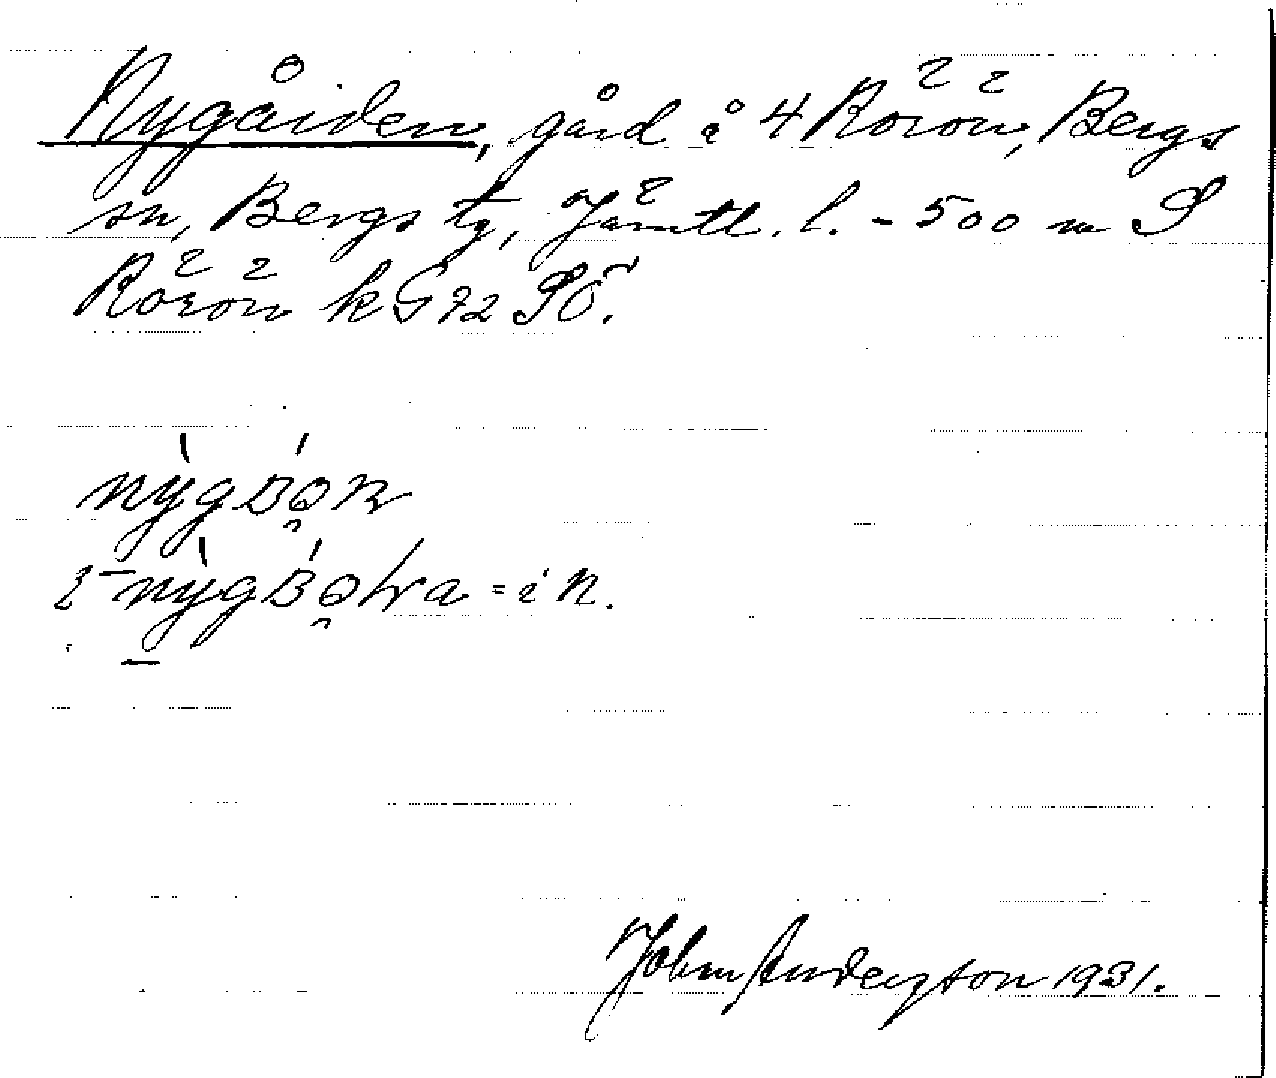 Nygården, gård å 4 Rörön, Bergs
sn, Bergs tg, Jämtl. l. - 500 m S
Rörön k G 72 SÖ.
= i N.
John Andersson 1931.